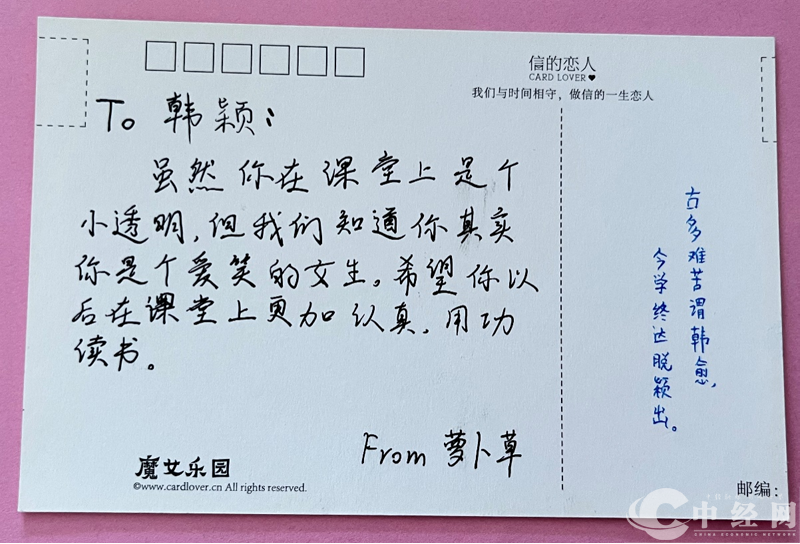 信的恋人
CARD LOVER♥
我们与时间相守，做信的一生恋人
To 韩颖：
虽然你在课堂上是个
小透明，但我们知道你其实
你是个爱笑的女生。希望你以
后在课堂上更加认真，用功
读书。
From 萝卜草
古多难苦谓韩愈，
今学终达脱颖出。
魔女乐园
©www.cardlover.cn All rights reserved.
邮编：
中经网
CHINA ECONOMIC NETWORK